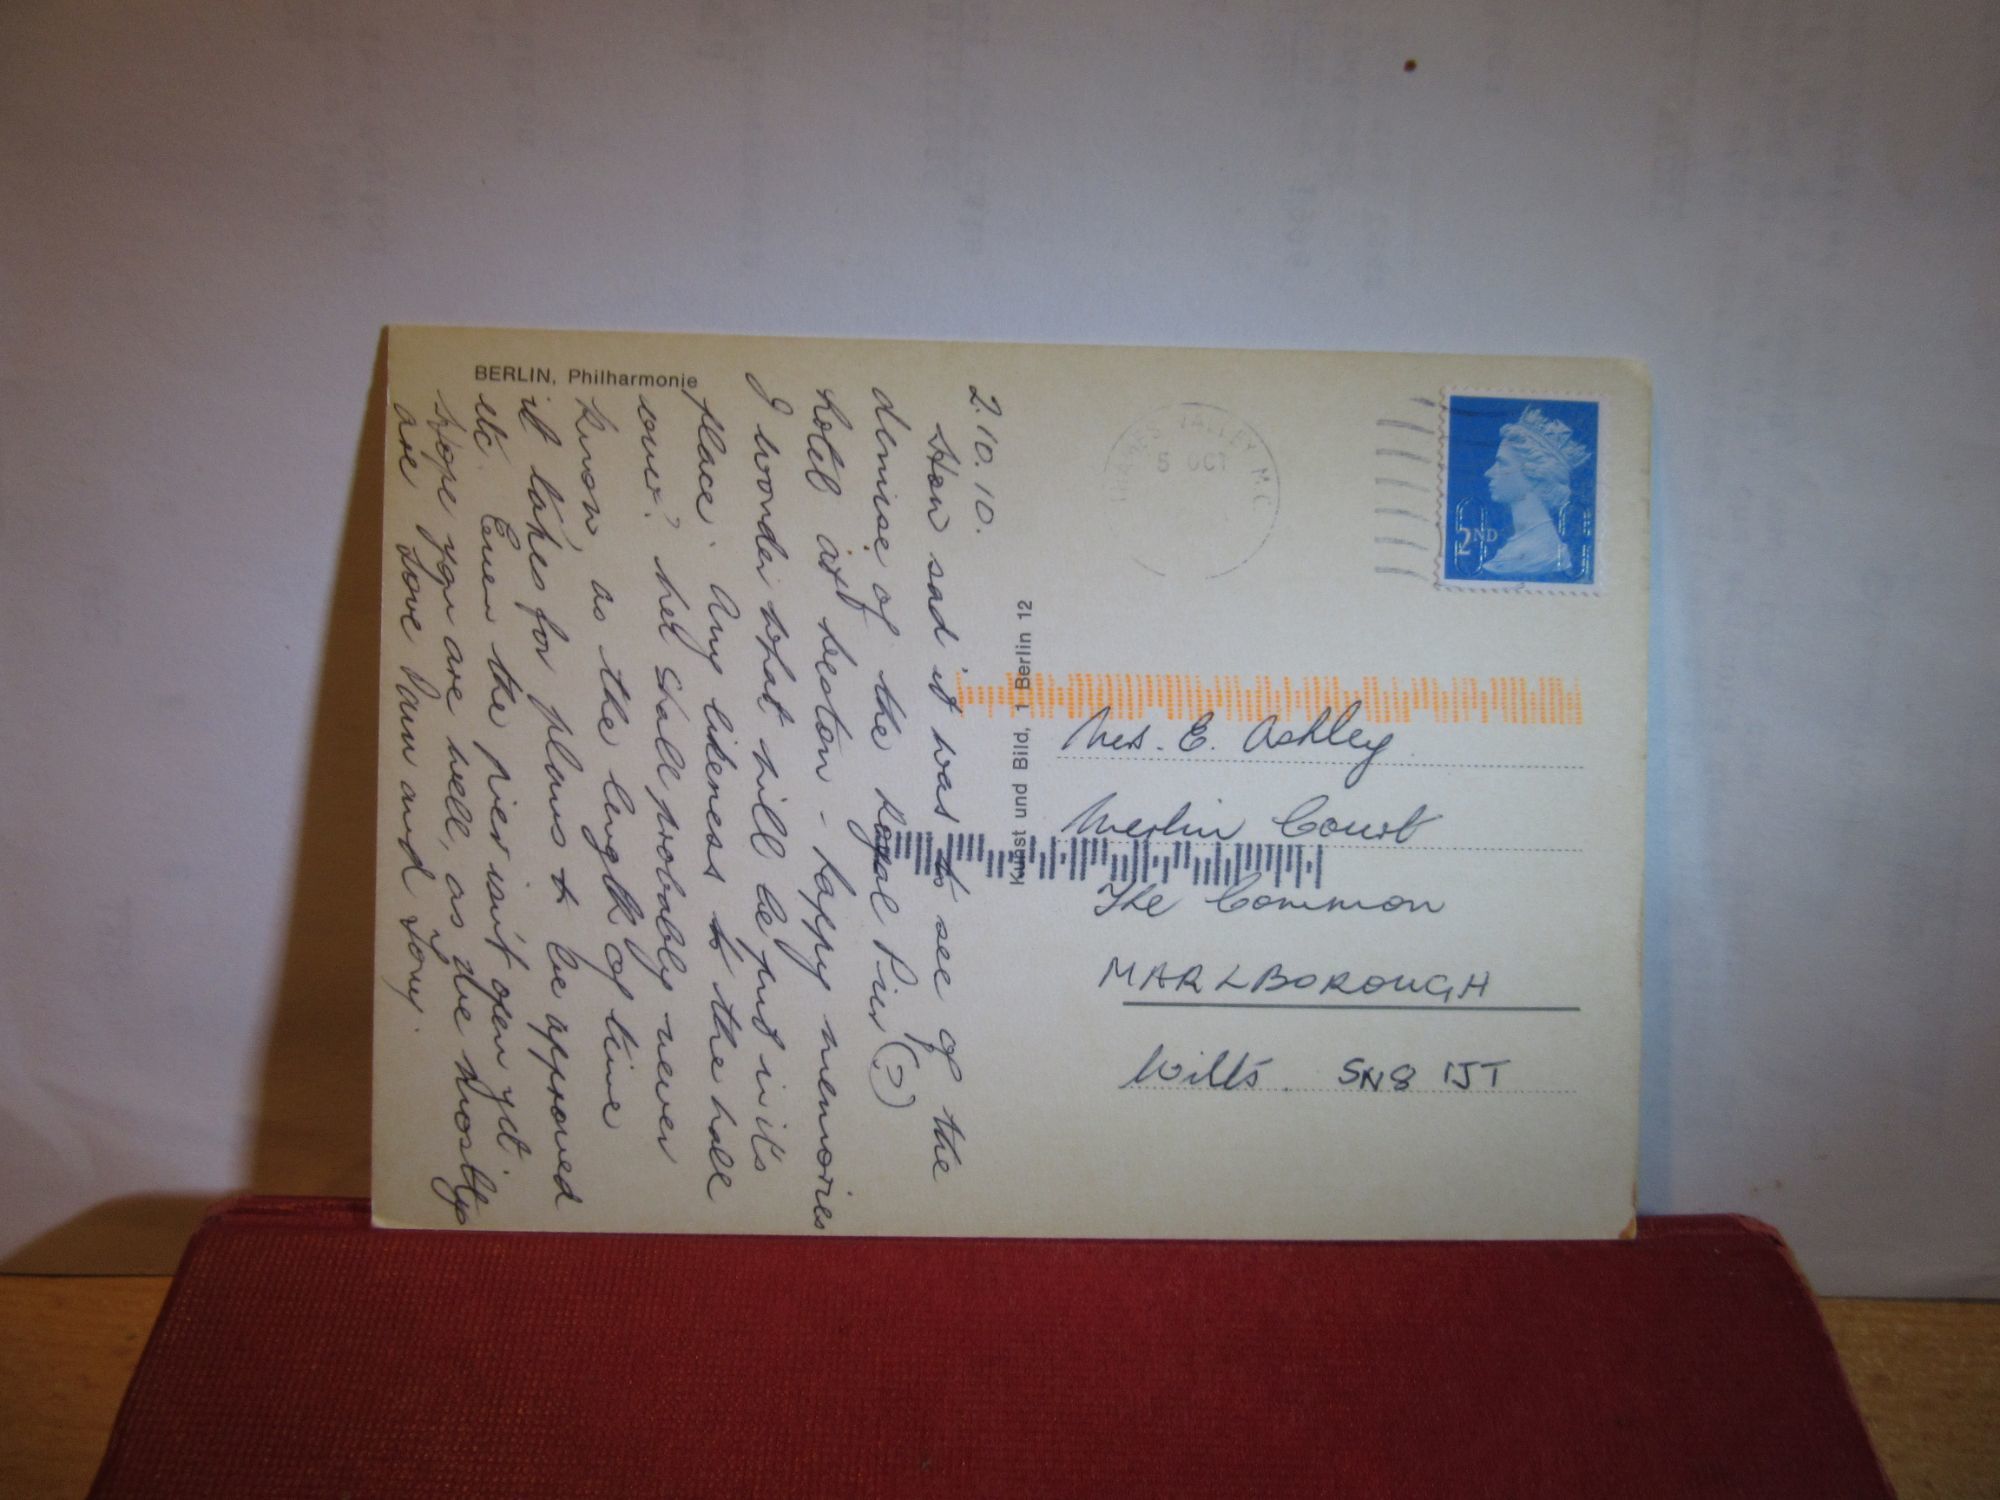 BERLIN, Philharmonie
2.10.10.
How sad it was to see of the
demise of the Royal Pier (?)
hotel at Weston - happy memories
I wonder what will be put in it's
place. Any likeness to the hall
over? We shall probably never
know, as the length of time
it takes for plans to be approved
etc. Even the pier isn't open yet
Hope you are well, as we mostly
are Love Pam and Tony.
Kunst und Bild, 1 Berlin 12
THAMES VALLEY M.C.
5 OCT
2ND
Mrs. E. Ashley
Merlin Court
The Common
MARLBOROUGH
Wilts. SN8 1JT